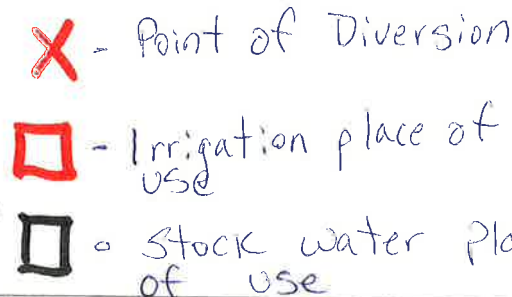 - Point of Diversion
- Irrigation place of
use
- Stock water
of use